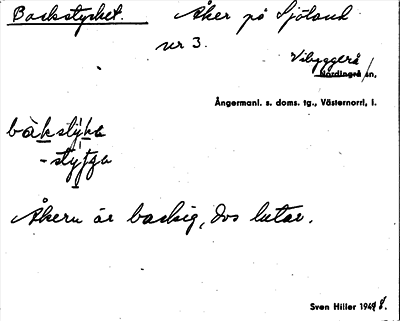 Backstycket. Åker på Sjöland
nr 3.
Vibyggerå
Nordingrå sn,
Ångermanl. s. doms. tg., Västernorrl, l.
Åkern är backig, dvs lutar.
Sven Hiller 1948.